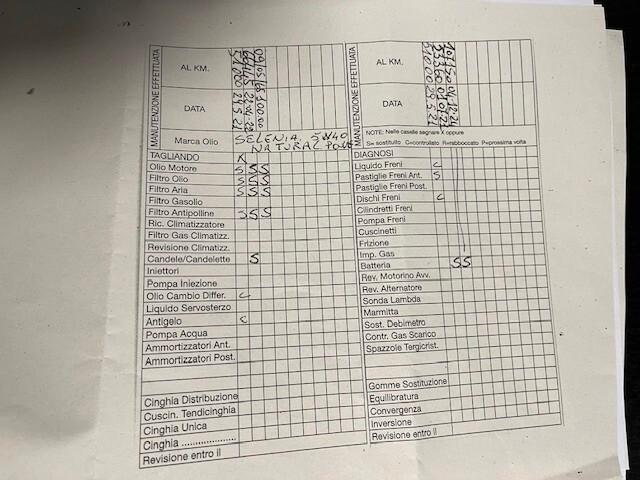 MANUTENZIONE EFFETTUATA
AL KM.
DATA
Marca Olio SELENIA 5W40
NATURAL POWER
TAGLIANDO X
Olio Motore S S S
Filtro Olio S S S
Filtro Aria S S S
Filtro Gasolio
Filtro Antipolline S S S
Ric. Climatizzatore
Filtro Gas Climatizz.
Revisione Climatizz.
Candele/Candelette S
Iniettori
Pompa Iniezione
Olio Cambio Differ. C
Liquido Servosterzo
Antigelo C
Pompa Acqua
Ammortizzatori Ant.
Ammortizzatori Post.
Cinghia Distribuzione
Cuscin. Tendicinghia
Cinghia Unica
Cinghia ....................
Revisione entro il
MANUTENZIONE EFFETTUATA
AL KM.
DATA
NOTE: Nelle caselle segnare X oppure
S= sostituito C=controllato R=rabboccato P=prossima volta
DIAGNOSI
Liquido Freni C
Pastiglie Freni Ant. S
Pastiglie Freni Post.
Dischi Freni C
Cilindretti Freni
Pompa Freni
Cuscinetti
Frizione
Imp. Gas
Batteria S S
Rev. Motorino Avv.
Rev. Alternatore
Sonda Lambda
Marmitta
Sost. Debimetro
Contr. Gas Scarico
Spazzole Tergicrist.
Gomme Sostituzione
Equilibratura
Convergenza
Inversione
Revisione entro il